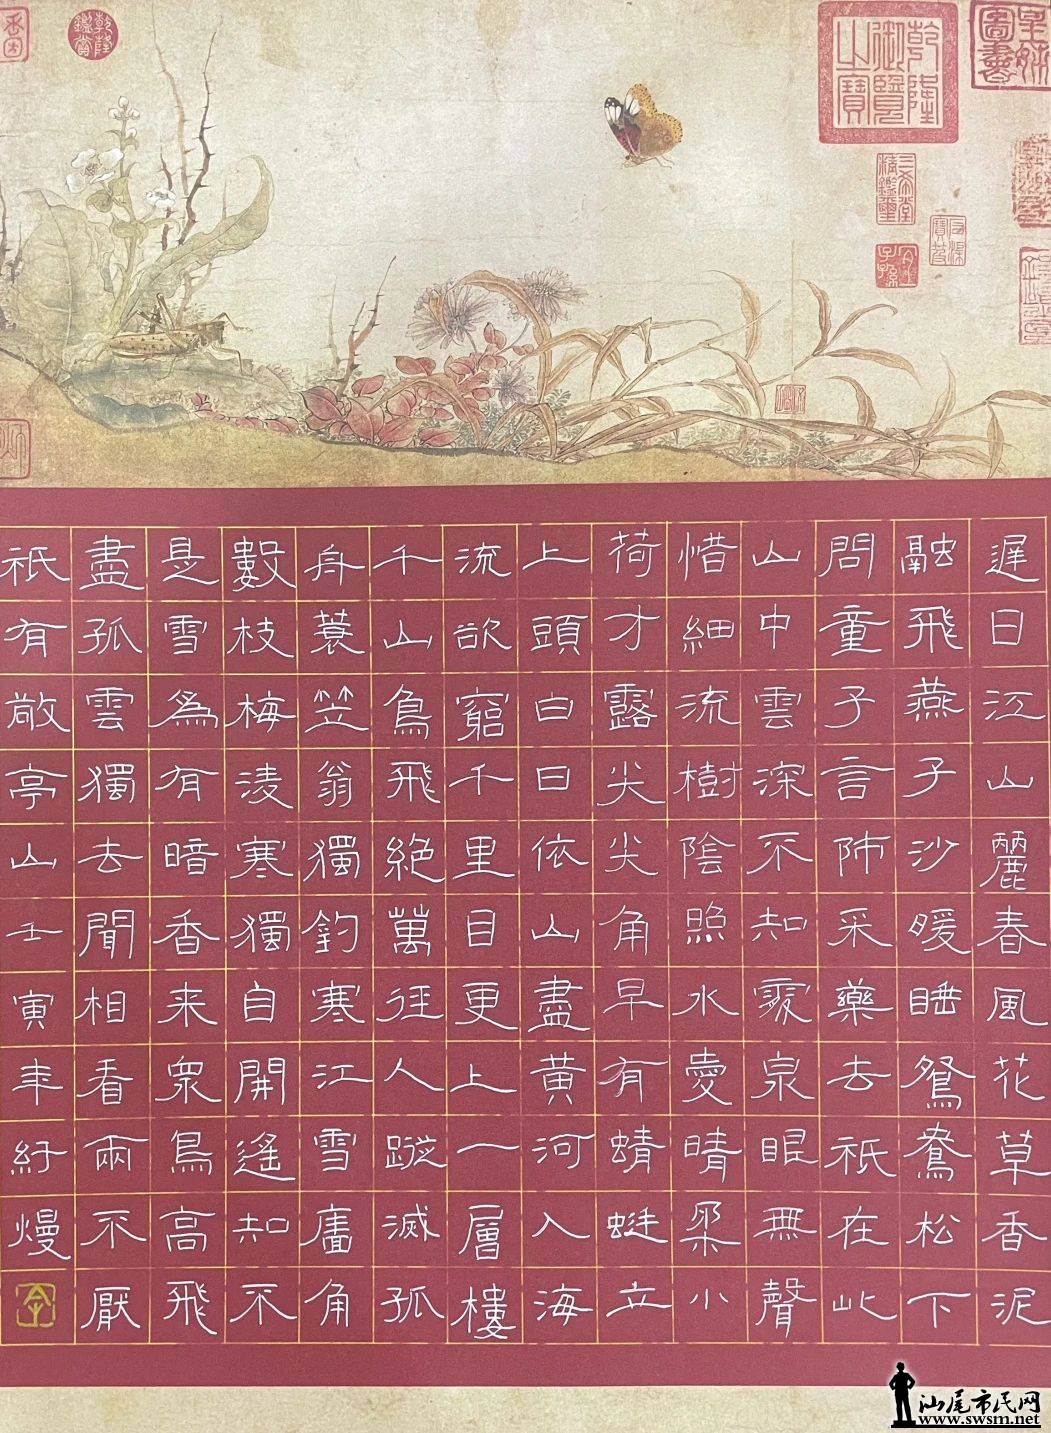 乾隆鑑賞
乾隆御覽之寶
三希堂精鑑璽
宜子孫
遲日江山麗春風花草香泥
融飛燕子沙暖睡鴛鴦松下
問童子言師采藥去祇在此
山中雲深不知處泉眼無聲
惜細流樹陰照水愛晴柔小
荷才露尖尖角早有蜻蜓立
上頭白日依山盡黃河入海
流欲窮千里目更上一層樓
千山鳥飛絕萬徑人蹤滅孤
舟蓑笠翁獨釣寒江雪廧角
數枝梅淩寒獨自開遙知不
是雪為有暗香来眾鳥高飛
盡孤雲獨去聞相看兩不厭
祇有敞亭山壬寅年紆熳
汕尾市民网
www.swsm.net